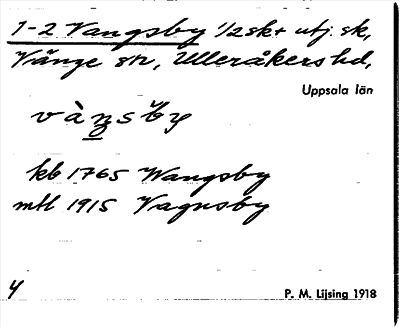 1-2 Vangsby 1/2 sk + utj. sk,
Vänge sn, Ulleråkers hd,
Uppsala län
vàŋsby
kb 1765 Wangsby
mtl 1915 Vagnsby
4
P. M. Lijsing 1918